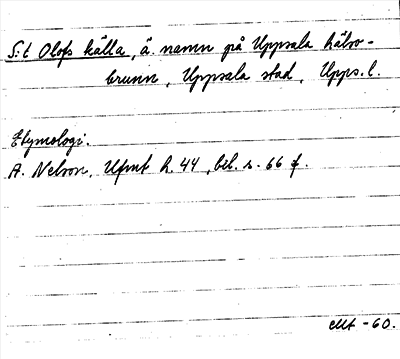 S:t Olofs källa, ä. namn på Uppsala hälso-
brunn, Uppsala stad, Uppl.
Etymologi.
A. Nelson, Ufmt h. 44, bil. s. 66 f.
-60.